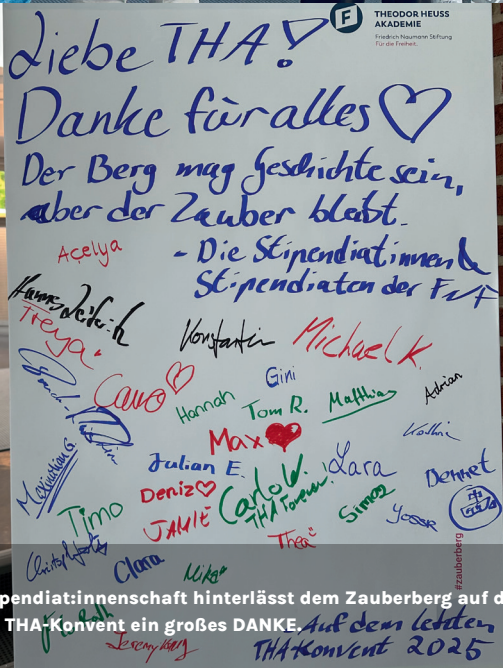 THEODOR HEUSS
AKADEMIE
Friedrich Naumann Stiftung
Für die Freiheit.
Liebe THA!
Danke für alles ♡
Der Berg mag Geschichte sein,
aber der Zauber bleibt.
- Die Stipendiatinnen &
Stipendiaten der FNF
Açelya
Freya
Konstantin
Michael K.
Caro ♡
Gini
Adrian
Hannah
Tom R.
Matthias
Max ♥
Julian E.
Lara
Dennet
Maximilian G.
Deniz ♡
Carlo W.
THA Forever!
Simon
Timo
JAMIE
Thea
Clara
Mika
#zauberberg
pendiat:innenschaft hinterlässt dem Zauberberg auf d
THA-Konvent ein großes DANKE.
Auf dem letzten
THA-Konvent 2025